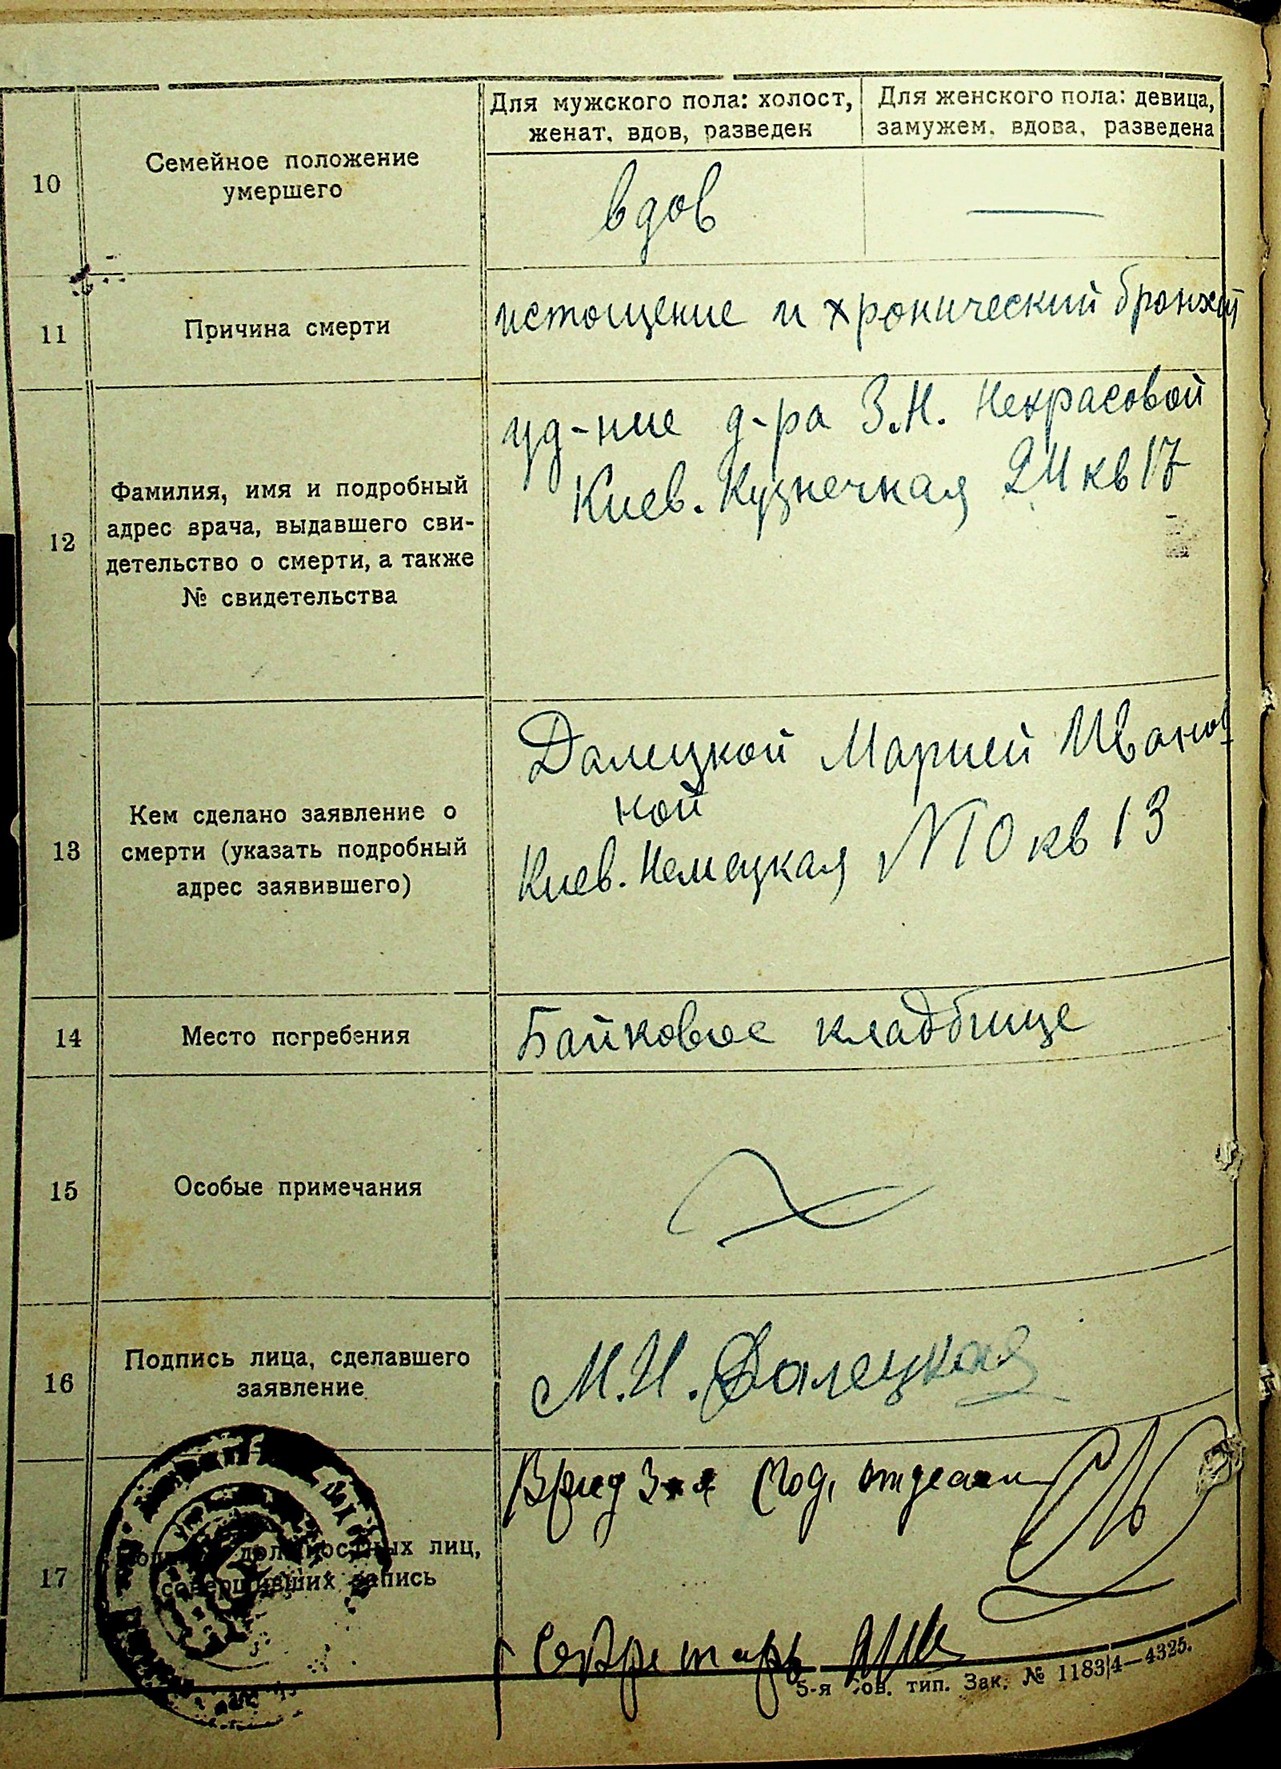 Для мужского пола: холост,
женат, вдов, разведен
Для женского пола: девица,
замужем, вдова, разведена
10
Семейное положение
умершего
вдов
11
Причина смерти
истощение и хронический бронхит
12
Фамилия, имя и подробный
адрес врача, выдавшего сви-
детельство о смерти, а также
№ свидетельства
уд-ние д-ра З.Н. Некрасовой
Киев. Кузнечная 24 кв 17
13
Кем сделано заявление о
смерти (указать подробный
адрес заявившего)
Далецкой Марией Иванов
ной
Киев. Немецкая №10 кв 13
14
Место погребения
Байковое кладбище
15
Особые примечания
16
Подпись лица, сделавшего
заявление
М.И. Далецкая
17
должностных лиц,
совершивших запись
Врид отделом
Секретарь
5-я Сов. тип. Зак. № 1183|4—4325.